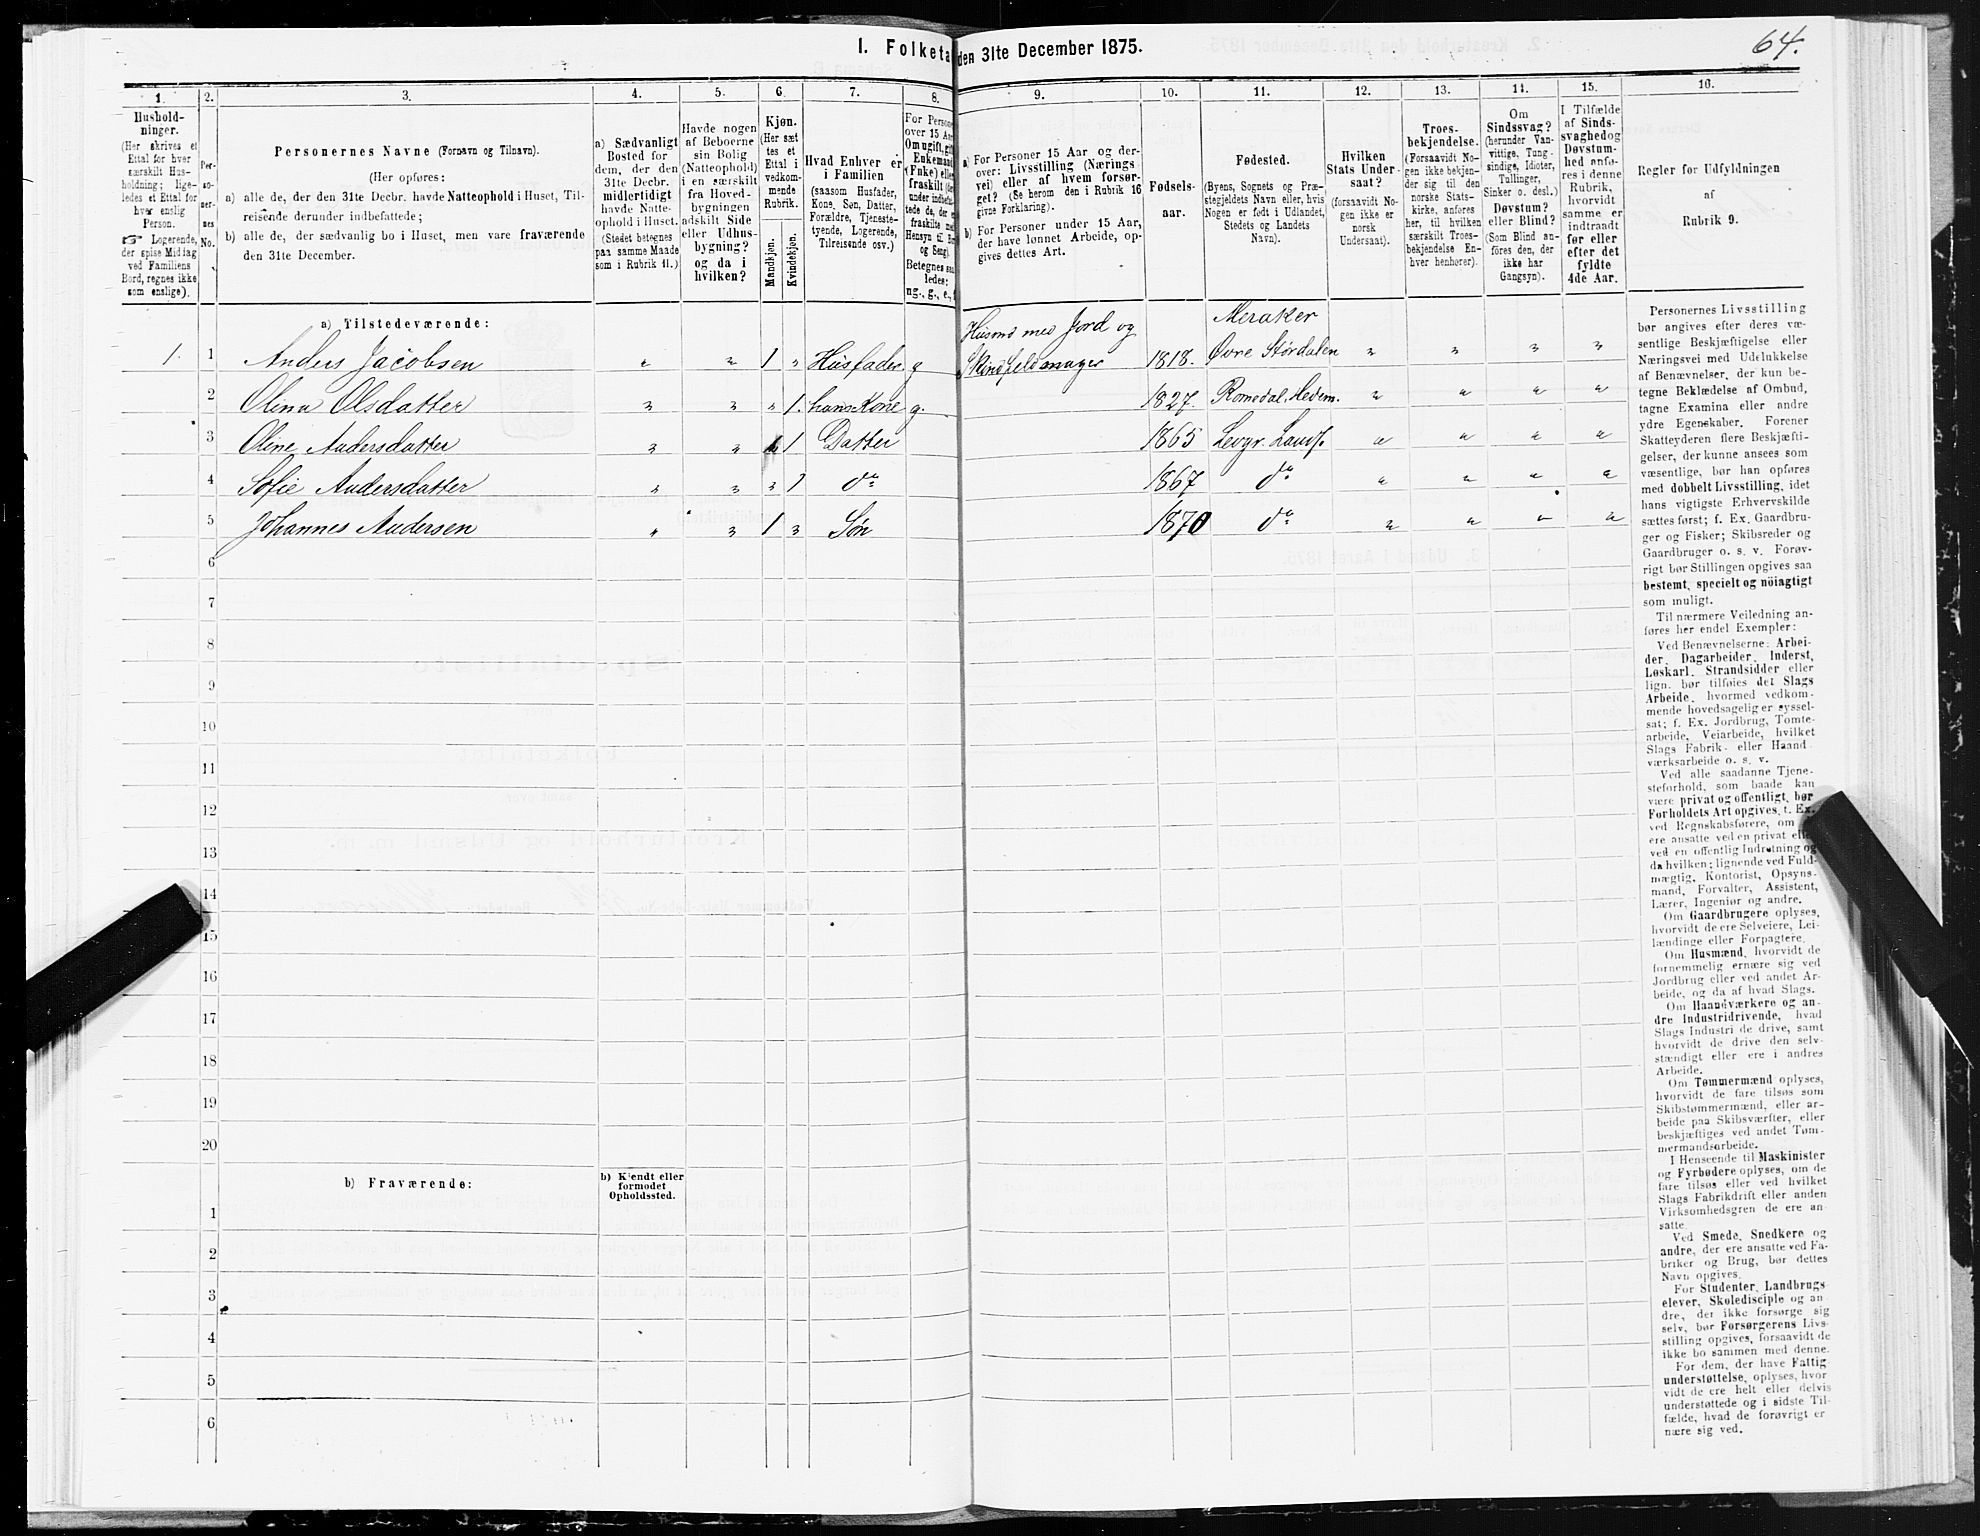 I. Folketa den 31te December 1875.
64.
1. 2. 3. 4. 5. 6. 7. 8. 9. 10. 11. 12. 13. 14. 15. 16.
Hushold-
ninger.
(Her skrives et
Ettal for hver
særskilt Hus-
holdning; lige-
ledes et Ettal for
hver enslig
Person.
☞ Logerende,
der spise Middag
ved Familiens
Bord, regnes ikke
som enslige).
Per-
so-
ner-
nes
No.
Personernes Navne (Fornavn og Tilnavn).
(Her opføres:
a) alle de, der den 31te Decbr. havde Natteophold i Huset, Til-
reisende derunder indbefattede;
b) alle de, der sædvanlig bo i Huset, men vare fraværende
den 31te December.
a) Sædvanligt
Bosted for
dem, der den
31te Decbr.
midlertidigt
havde Natte-
ophold i Huset
(Stedet betegnes
paa samme Maade
som i Rubrik 11.)
Havde nogen
af Beboerne
sin Bolig
(Natteophold)
i en særskilt
fra Hoved-
bygningen
adskilt Side
eller Udhus-
bygning?
og da i
hvilken?
Kjøn.
(Her sæt
tes et
Ettal i
vedkom-
mende
Rubrik.
Mandkjøn.
Kvindekjøn.
Hvad Enhver er
i Familien
(saasom Husfader,
Kone, Søn, Datter,
Forældre, Tjeneste-
tyende, Logerende,
Tilreisende osv.)
For Persone
over 15 Aar
Om ugift, gift
Enkemand
(Enke) eller
fraskilt
under indbefat-
tede de, der
fraskilte med
Hensyn til Bo
og Seng).
Betegnes saa
ledes:
ug., g., e., f
a) For Personer 15 Aar og der-
over: Livsstilling (Nærings
vei) eller af hvem forsør-
get? (Se herom den i Rubrik 16
givne Forklaring).
b) For Personer under 15 Aar,
der have lønnet Arbeide, op-
gives dettes Art.
Fødsels-
aar.
Fødested.
(Byens, Sognets og Præ-
stegjeldets Navn eller, hvis
Nogen er født i Udlandet,
Stedets og Landets
Navn).
Hvilken
Stats Under-
saat?
(forsaavidt No-
gen ikke er
norsk
Undersaat).
Troes-
bekjendelse.
(Forsaavidt No-
gen ikke bekjen-
der sig til den
norske Stats-
kirke, anføres
her, til hvilken
særskilt Troes-
bekjendelse En-
hver henhører).
Om
Sindssvag?
(herunder Van-
vittige, Tung-
sindige, Idioter,
Tullinger,
Sinker o. desl.)
Døvstum?
eller Blind?
(Som Blind an-
føres den, der
ikke har
Gangsyn).
I Tilfælde
af Sinds-
svaghed og
Døvstum-
hed anfø-
res i denne
Rubrik,
hvorvidt
samme er
indtraadt
før eller
efter det
fyldte
4de Aar.
Regler for Udfyldningen
af
Rubrik 9.
a) Tilstedeværende:
Husmd med Jord og Meraker
1. 1 Anders Jacobsen " " 1 " Husfader g Skindfeldmager 1818. Øvre Størdalen " " " "
2 Olina Olsdatter " " " 1. hans Kone g. 1827. Romedal. Hedem. " " " "
3 Oline Andersdatter " " 1 Datter 1865 Levgr. Lands. " " " "
4 Sofie Andersdatter " " " 1 do 1867 do " " " "
5 Johannes Andersen " " 1 " Søn 1870 do " " " "
6
7
8
9
10
11
12
13
14
15
16
17
18
19
20
b) Fraværende:
b) Kjendt eller
formodet
Opholdssted.
1
2
3
4
5
6
Personernes Livsstilling
bør angives efter deres væ-
sentlige Beskjæftigelse eller
Næringsvei med Udelukkelse
af Benævnelser, der kun be-
tegne Beklædelse af Ombud,
tagne Examina eller andre
ydre Egenskaber. Forener
Skatteyderen flere Beskjæfti-
gelser, der kunne ansees som
væsentlige, bør han opføres
med dobbelt Livsstilling, idet
hans vigtigste Erhvervskilde
sættes først; f. Ex. Gaardbru-
ger og Fisker; Skibsreder og
Gaardbruger o. s. v. Forøv-
rigt bør Stillingen opgives saa
bestemt, specielt og nöiagtigt
som muligt.
Til nærmere Veiledning an-
føres her endel Exempler:
Ved Benævnelserne: Arbei-
der, Dagarbeider, Inderst,
Løskarl, Strandsidder eller
lign. bør tilføies det Slags
Arbeide, hvormed vedkom-
mende hovedsagelig er syssel-
sat; f. Ex. Jordbrug, Tomte-
arbeide, Veiarbeide, hvilket
Slags Fabrik- eller Haand-
værksarbeide o. s. v.
Ved alle saadanne Tjene-
steforhold, som baade kan
være privat og offentligt, bør
Forholdets Art opgives, t. Ex.
ved Regnskabsførere, om
ere ansatte ved en privat eller
ved en offentlig Indretning og
da hvilken; lignende ved Fuld-
mægtig, Kontorist, Opsyns-
mand, Forvalter, Assistent,
Lærer, Ingeniør og andre.
Om Gaardbrugere oplyses,
hvorvidt de ere Selveiere, Lei-
lændinge eller Forpagtere.
Om Husmænd, hvorvidt de
fornemmelig ernære sig ved
Jordbrug eller ved andet Ar-
beide, og da af hvad Slags.
Om Haandværkere og an-
dre Industridrivende, hvad
Slags Industri de drive, samt
hvorvidt de drive den selv-
stændigt eller ere i andres
Arbeide.
Om Tømmermænd oplyses,
hvorvidt de fare tilsøs som
Skibstømmermænd, eller ar-
beide paa Skibsværfter, eller
beskjæftiges ved andet Tøm-
mermandsarbeide.
I Henseende til Maskinister
og Fyrbødere oplyses, om de
fare tilsøs eller ved hvilket
Slags Fabrikdrift eller anden
Virksomhedsgren de ere an-
satte.
Ved Smede, Snedkere og
andre, der ere ansatte ved Fa-
briker og Brug, bør dettes
Navn opgives.
For Studenter, Landbrugs
elever, Skoledisciple og an-
dre, der ikke forsørge sig
selv, bør Forsørgerens Livs-
stilling opgives, forsaavidt de
ikke bo sammen med denne.
For dem, der have Fattig-
understøttelse, oplyses, hvor
vidt de ere helt eller delvis
understøttede og i sidste Til-
fælde, hvad de forøvrigt er
nære sig ved.